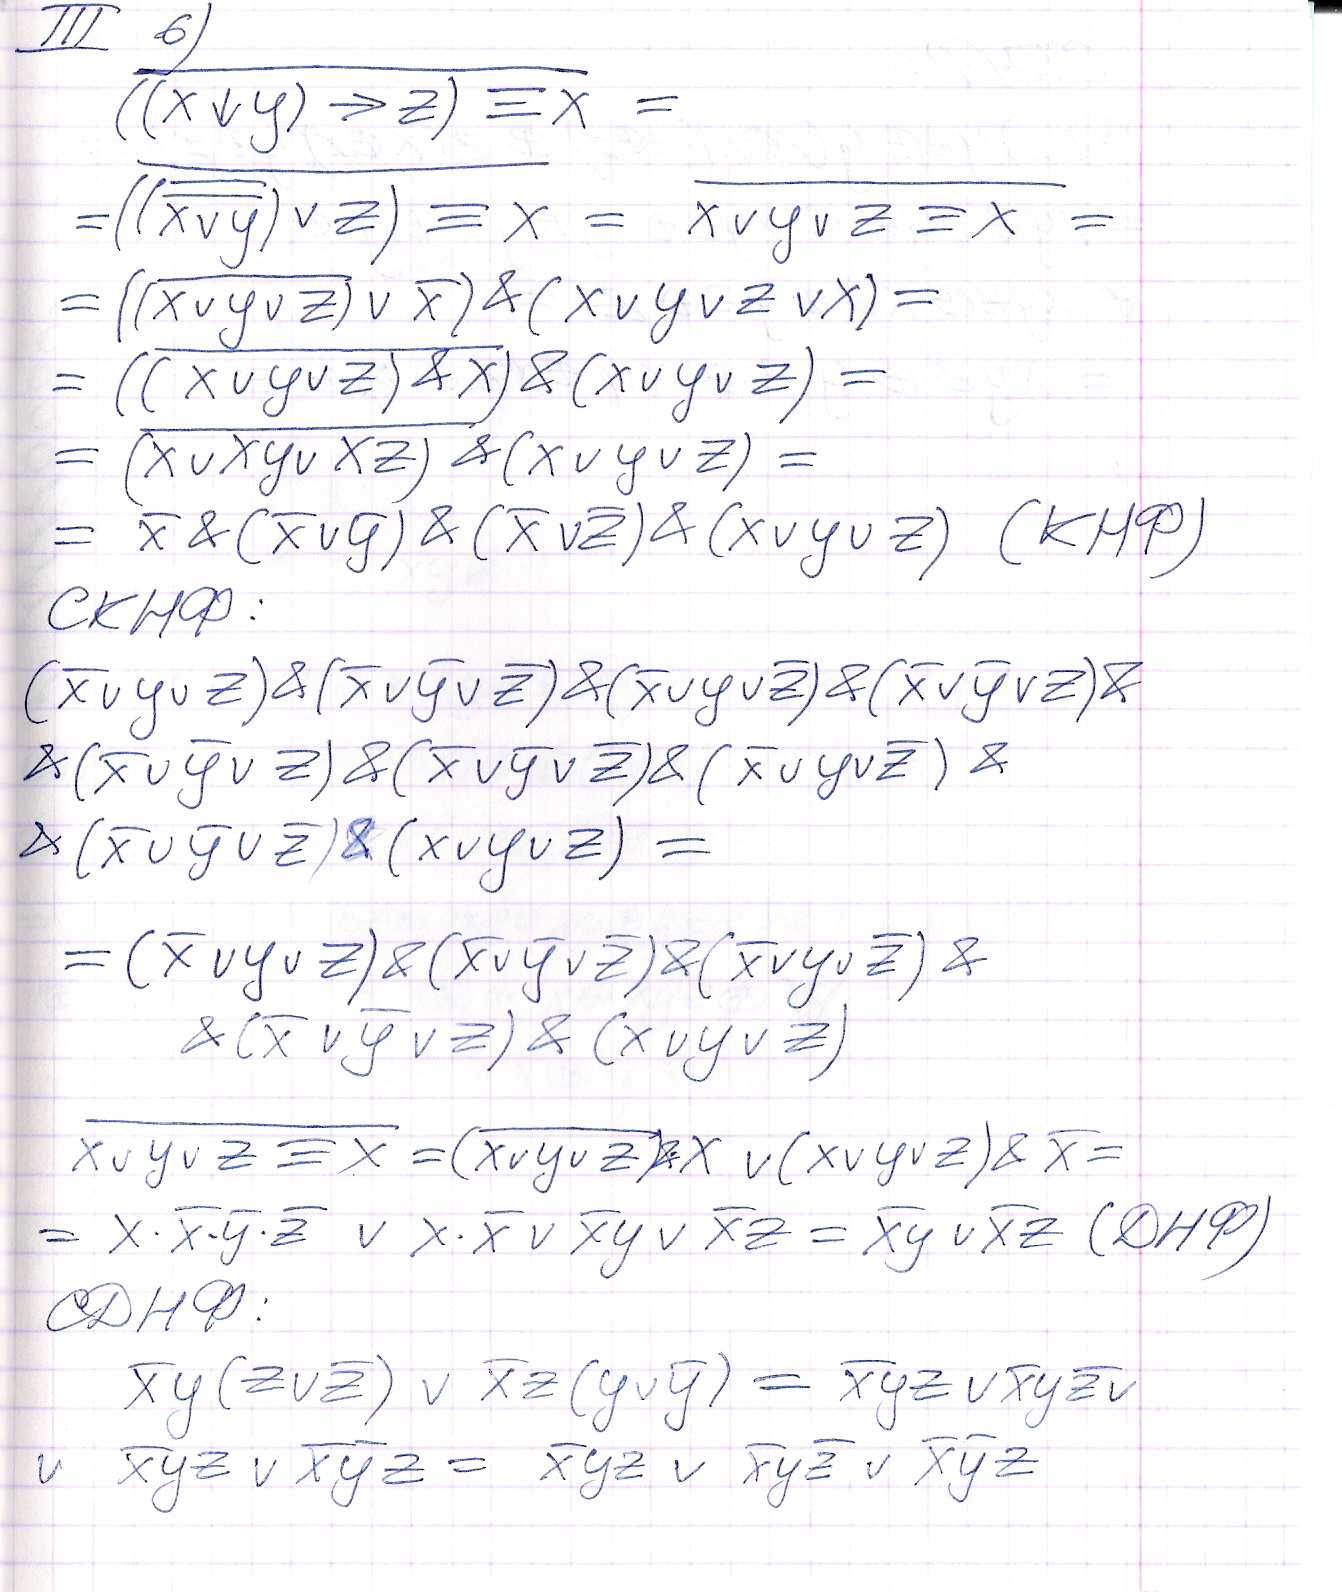 III б)
\overline{((x ↓ y) → z) ≡ x} =
= \overline{((\overline{\overline{x ∨ y}}) ∨ z) ≡ x} = \overline{x ∨ y ∨ z ≡ x} =
= ((\overline{x ∨ y ∨ z}) ∨ x̅) & (x ∨ y ∨ z ∨ x) =
= (\overline{(x ∨ y ∨ z) & x}) & (x ∨ y ∨ z) =
= (\overline{x ∨ xy ∨ xz}) & (x ∨ y ∨ z) =
= x̅ & (x̅ ∨ y̅) & (x̅ ∨ z̅) & (x ∨ y ∨ z) (КНФ)
СКНФ:
(x̅ ∨ y ∨ z) & (x̅ ∨ y̅ ∨ z̅) & (x̅ ∨ y ∨ z̅) & (x̅ ∨ y̅ ∨ z) &
& (x̅ ∨ y̅ ∨ z) & (x̅ ∨ y̅ ∨ z̅) & (x̅ ∨ y ∨ z̅) &
& (x̅ ∨ y̅ ∨ z̅) & (x ∨ y ∨ z) =
= (x̅ ∨ y ∨ z) & (x̅ ∨ y̅ ∨ z̅) & (x̅ ∨ y ∨ z̅) &
& (x̅ ∨ y̅ ∨ z) & (x ∨ y ∨ z)
\overline{x ∨ y ∨ z ≡ x} = (\overline{x ∨ y ∨ z}) & x ∨ (x ∨ y ∨ z) & x̅ =
= x · x̅ · y̅ · z̅ ∨ x · x̅ ∨ x̅y ∨ x̅z = x̅y ∨ x̅z (ДНФ)
СДНФ:
x̅y(z ∨ z̅) ∨ x̅z(y ∨ y̅) = x̅yz ∨ x̅yz̅ ∨
∨ x̅yz ∨ x̅y̅z = x̅yz ∨ x̅yz̅ ∨ x̅y̅z